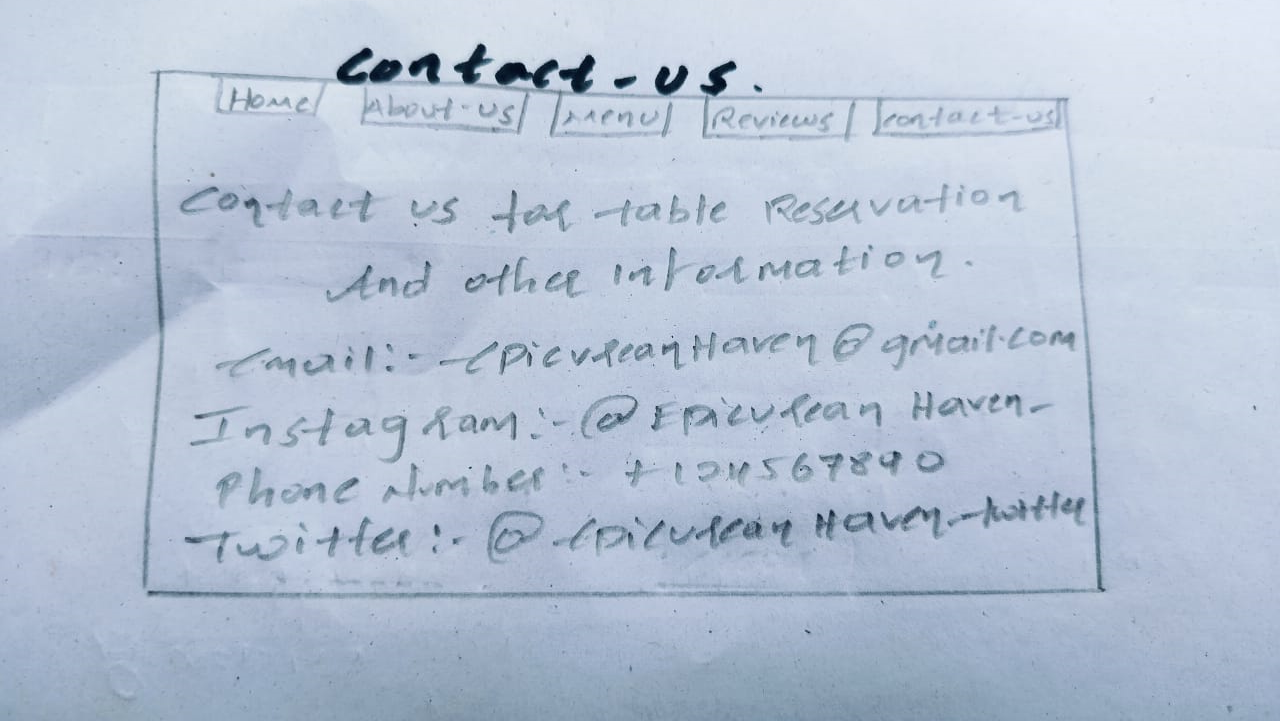 Contact-us.
Home About-us Menu Reviews contact-us
Contact us for table Reservation
And other information.
Email:- EpicureanHaven@gmail.com
Instagram:- @Epicurean Haven-
Phone Number:- +124567890
Twitter:- @Epicurean Haven-twitter